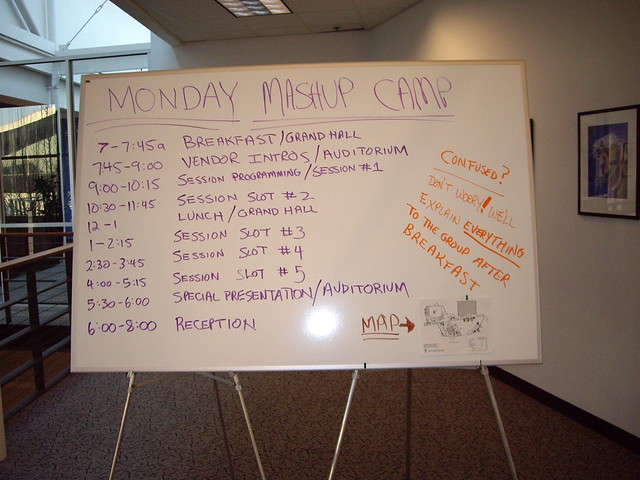 MONDAY MASHUP CAMP
7-7:45a BREAKFAST/GRAND HALL
745-9:00 VENDOR INTROS/AUDITORIUM
9:00-10:15 SESSION PROGRAMMING/SESSION #1
10:30-11:45 SESSION SLOT #2
12-1 LUNCH/GRAND HALL
1-2:15 SESSION SLOT #3
2:30-3:45 SESSION SLOT #4
4:00-5:15 SESSION SLOT #5
5:30-6:00 SPECIAL PRESENTATION/AUDITORIUM
6:00-8:00 RECEPTION
CONFUSED?
DON'T WORRY! WE'LL
EXPLAIN EVERYTHING
TO THE GROUP AFTER
BREAKFAST
MAP→